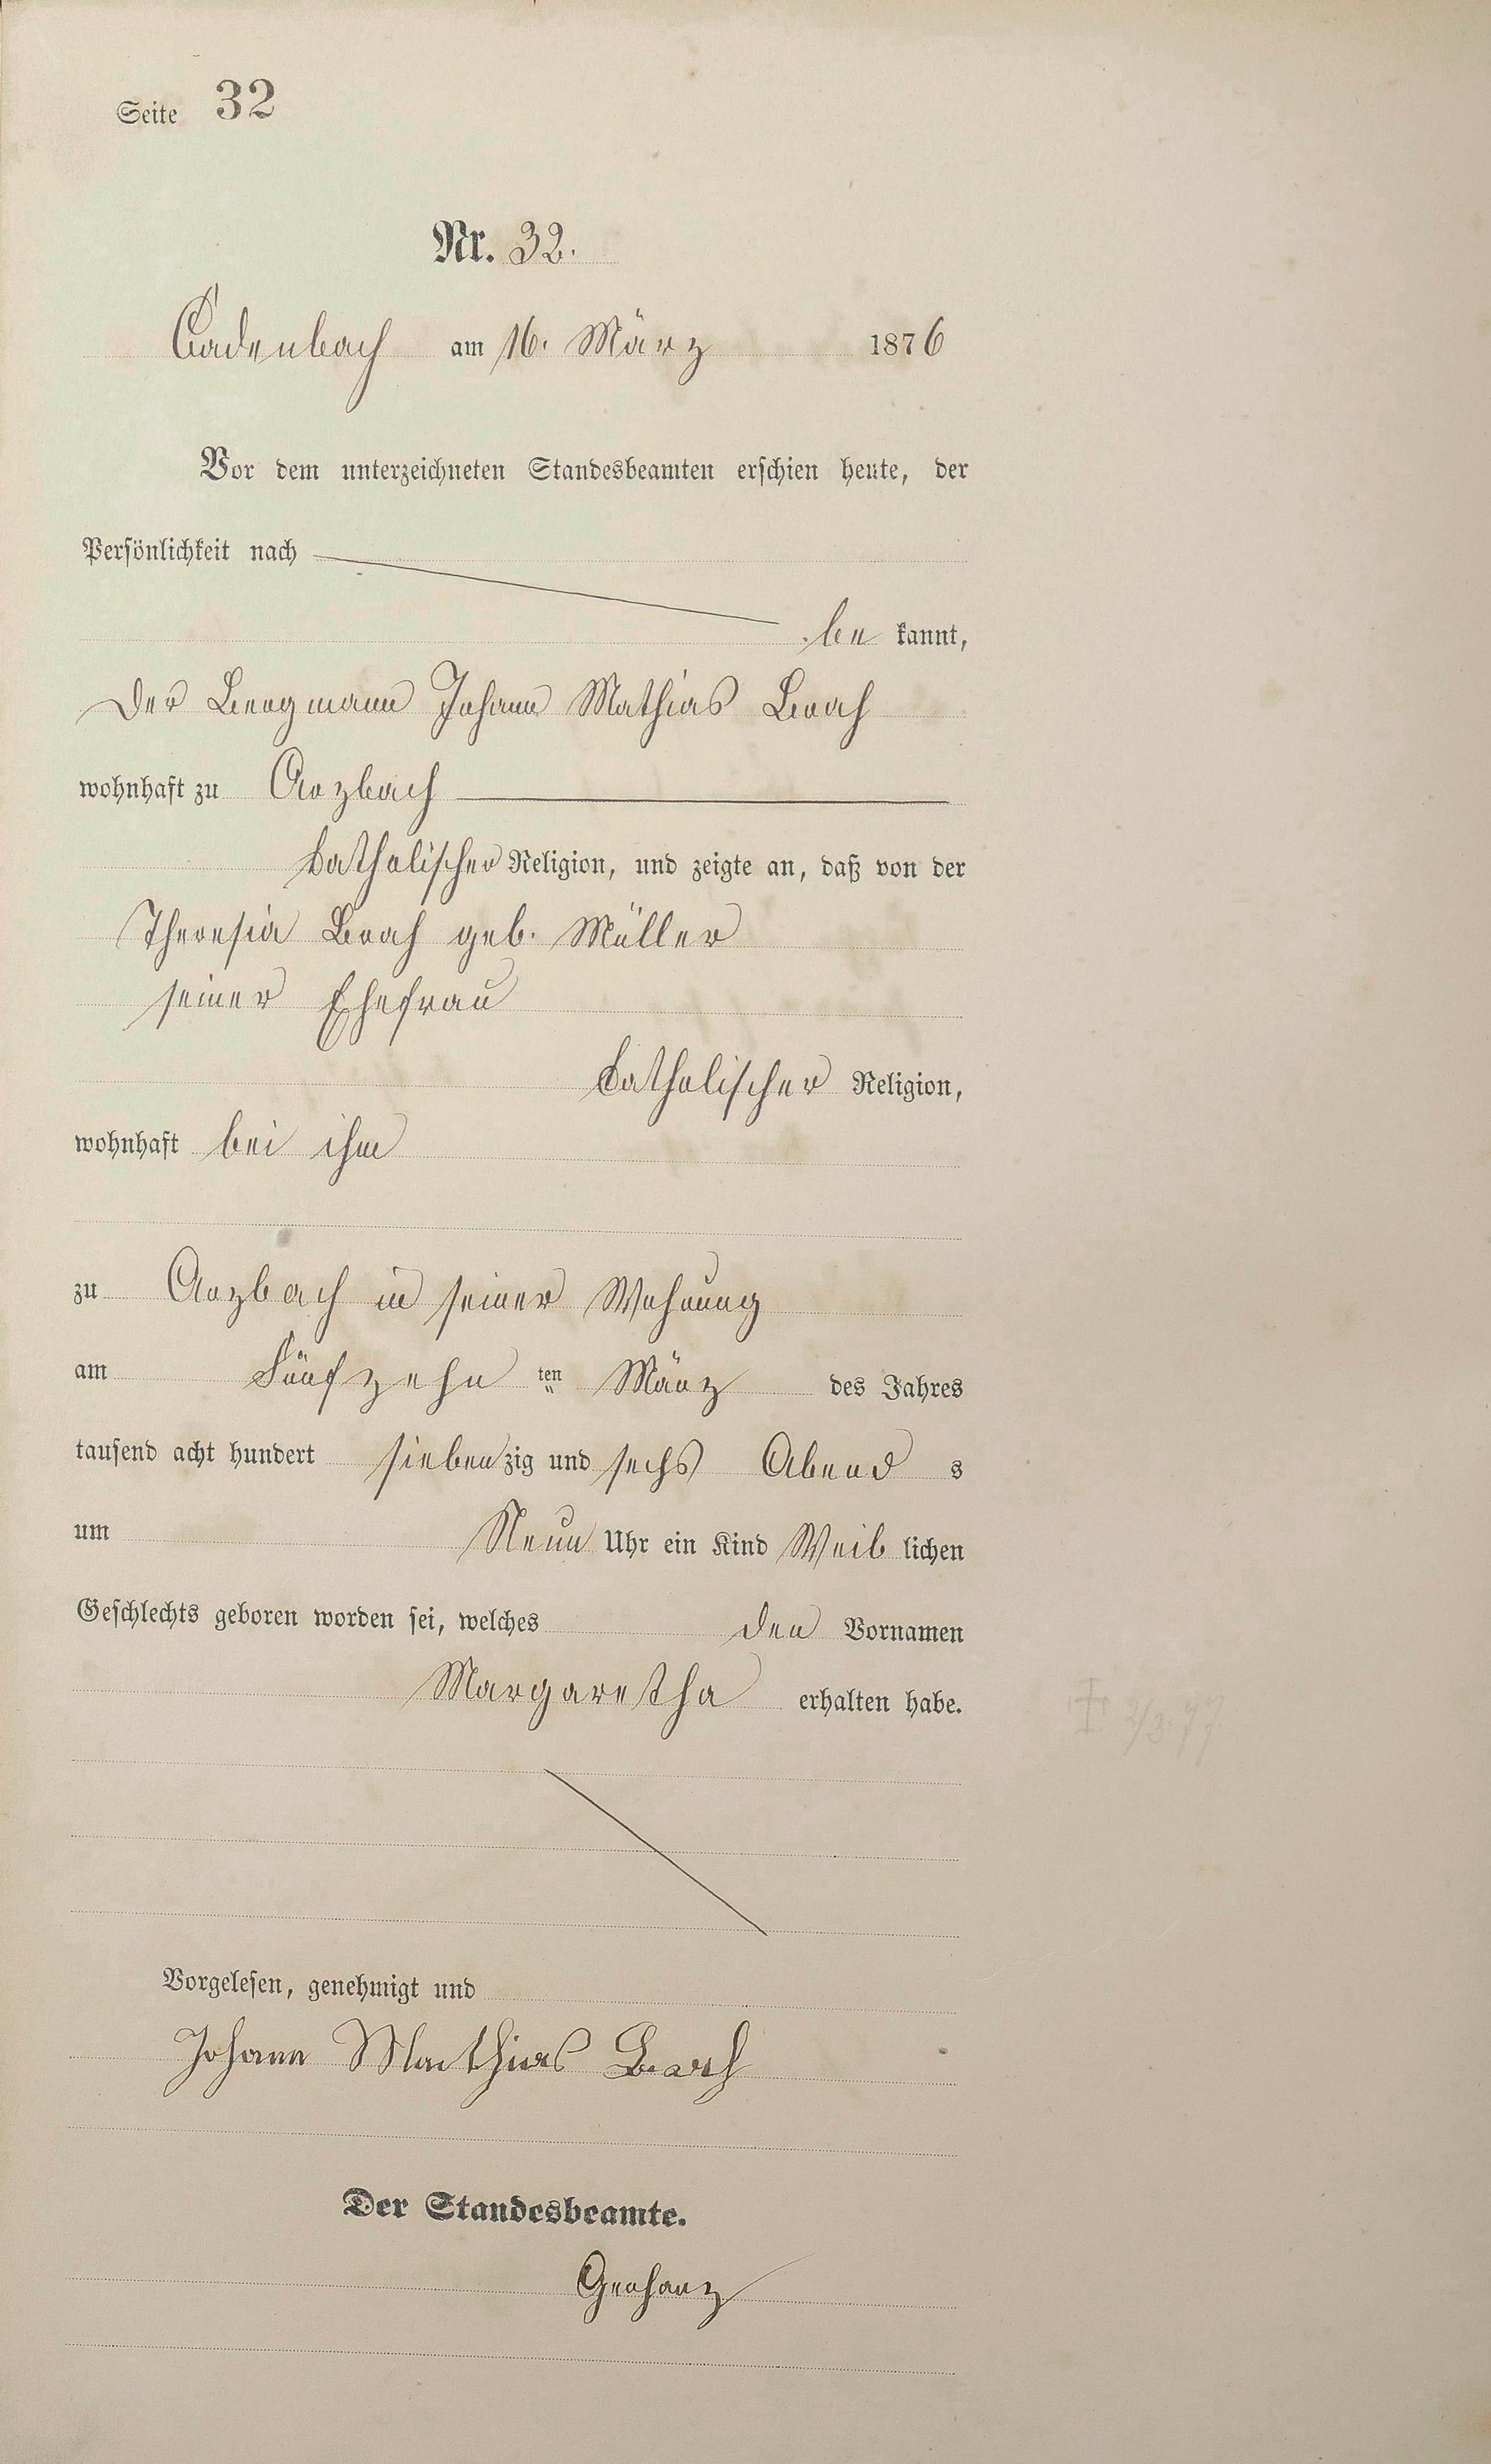 Seite 32
Nr. 32.
Cadenbach am 16. März 1876
Vor dem unterzeichneten Standesbeamten erschien heute, der
Persönlichkeit nach
be kannt,
der Bergmann Johann Mathias Brach
wohnhaft zu Arzbach
katholischer Religion, und zeigte an, daß von der
Theresia Brach geb. Müller
seiner Ehefrau
katholischer Religion,
wohnhaft bei ihm
zu Arzbach in seiner Wohnung
am Fünfzehn ten März des Jahres
tausend acht hundert siebenzig und sechs Abend s
um Neun Uhr ein Kind Weib lichen
Geschlechts geboren worden sei, welches den Vornamen
Margaretha erhalten habe.
† 2/3 77
Vorgelesen, genehmigt und
Johann Mathias
Der Standesbeamte.